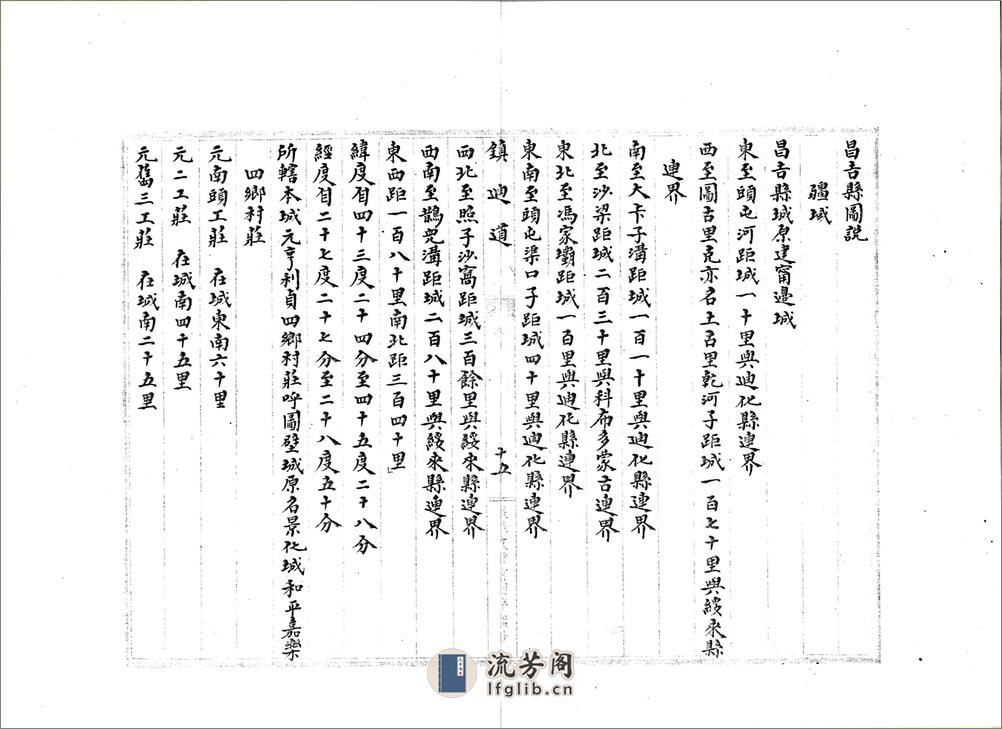 昌吉縣圖說
疆域
昌吉縣城原建甯邊城
東至頭屯河距城一十里與迪化縣連界
西至圖古里克亦名土古里乾河子距城一百七十里與綏來縣
連界
南至大卡子溝距城一百一十里與迪化縣連界
北至沙梁距城二百三十里與科布多蒙古連界
東北至馮家壩距城一百里與迪化縣連界
東南至頭屯渠口子距城四十里與迪化縣連界
鎮迪道
十五
西北至照子沙窩距城三百餘里與綏來縣連界
西南至鵲兒溝距城二百八十里與綏來縣連界
東西距一百八十里南北距三百四十里
緯度自四十三度二十四分至四十五度二十八分
經度自二十七度二十七分至二十八度五十分
所轄本城元亨利貞四鄉村莊呼圖壁城原名景化城和平嘉樂
四鄉村莊
元南頭工莊 在城東南六十里
元二工莊 在城南四十五里
元舊三工莊 在城南二十五里
流芳阁
lfglib.cn